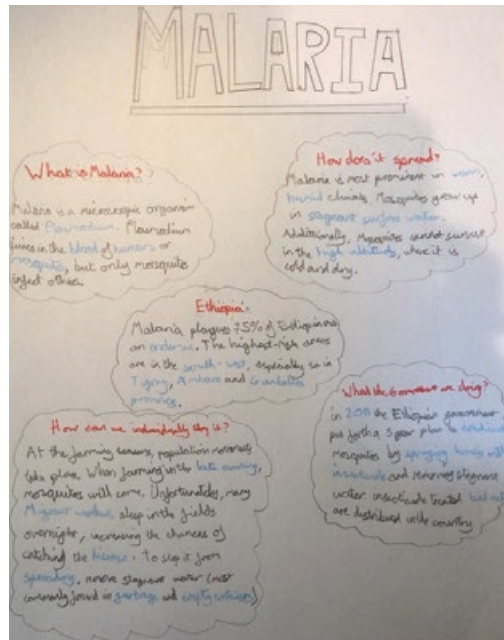 MALARIA
What is Malaria?
Malaria is a microscopic organism
called Plasmodium. Plasmodium
lives in the blood of humans or
mosquitos, but only mosquitos
infect others.
How does it spread?
Malaria is most prominent in warm,
humid climats. Mosquitos grow up
in stagnant surface water.
Additionally, Mosquitos cannot survive
in the high altitudes, where it is
cold and dry.
Ethiopia:
Malaria plagues 75% of Ethiopia as
an endemic. The highest-risk areas
are in the south-west, especially so in
Tigray, Amhara and Gambella
provinces.
How can we individually stop it?
At the farming seasons, population movements
take place. When farming in the late evening,
mosquitos will come. Unfortunately, many
Migrant workers sleep in the fields
overnight, increasing the chances of
catching the disease. To stop it from
spreading, remove stagnant water (most
commonly found in garbage and empty containers)
What the Government are doing?
in 2011 the Ethiopian government
put forth a 5 year plan to
mosquitos by spraying homes with
insecticide and removing stagnant
water. insecticide treated bed nets
are distributed in the country